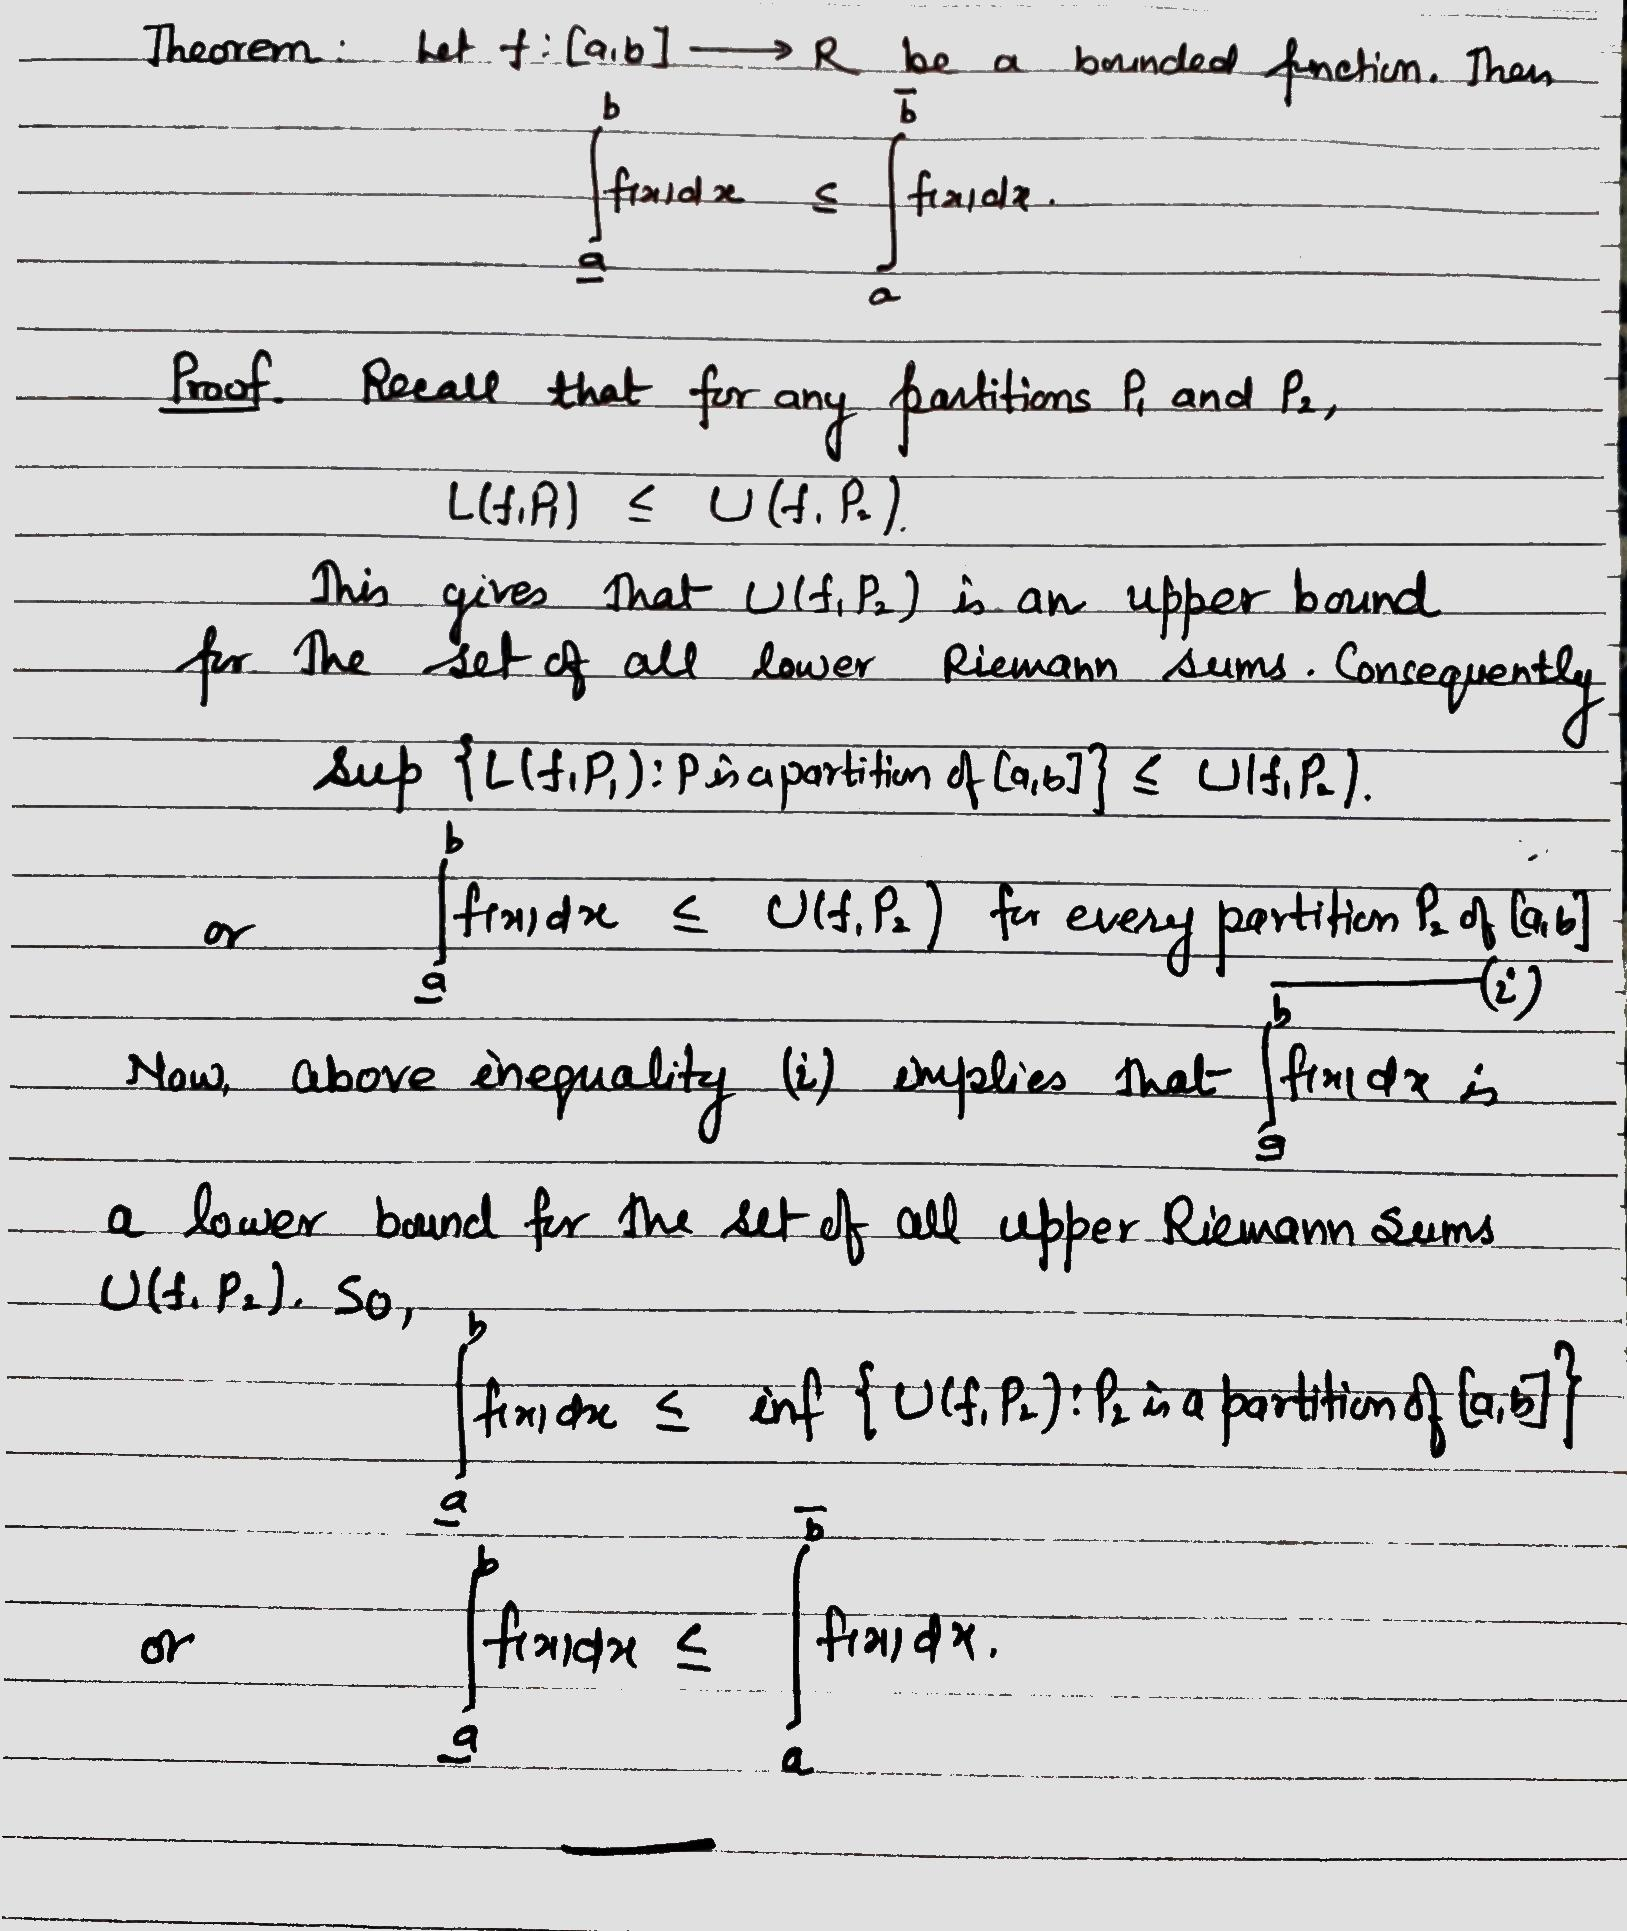 Theorem: Let f: [a,b] ⟶ R be a bounded function. Then
∫_{\underline{a}}^{b} f(x)dx ≤ ∫_{a}^{\overline{b}} f(x)dx.
Proof. Recall that for any partitions P₁ and P₂,
L(f,P₁) ≤ U(f,P₂).
This gives that U(f,P₂) is an upper bound
for the set of all lower Riemann sums. Consequently
Sup {L(f,P₁): P is a partition of [a,b]} ≤ U(f,P₂).
or ∫_{\underline{a}}^{b} f(x)dx ≤ U(f,P₂) for every partition P₂ of [a,b]
——— (i)
Now, above inequality (i) implies that ∫_{\underline{a}}^{b} f(x)dx is
a lower bound for the set of all upper Riemann Sums
U(f,P₂). So,
∫_{\underline{a}}^{b} f(x)dx ≤ inf {U(f,P₂): P₂ is a partition of [a,b]}
or ∫_{\underline{a}}^{b} f(x)dx ≤ ∫_{a}^{\overline{b}} f(x)dx.